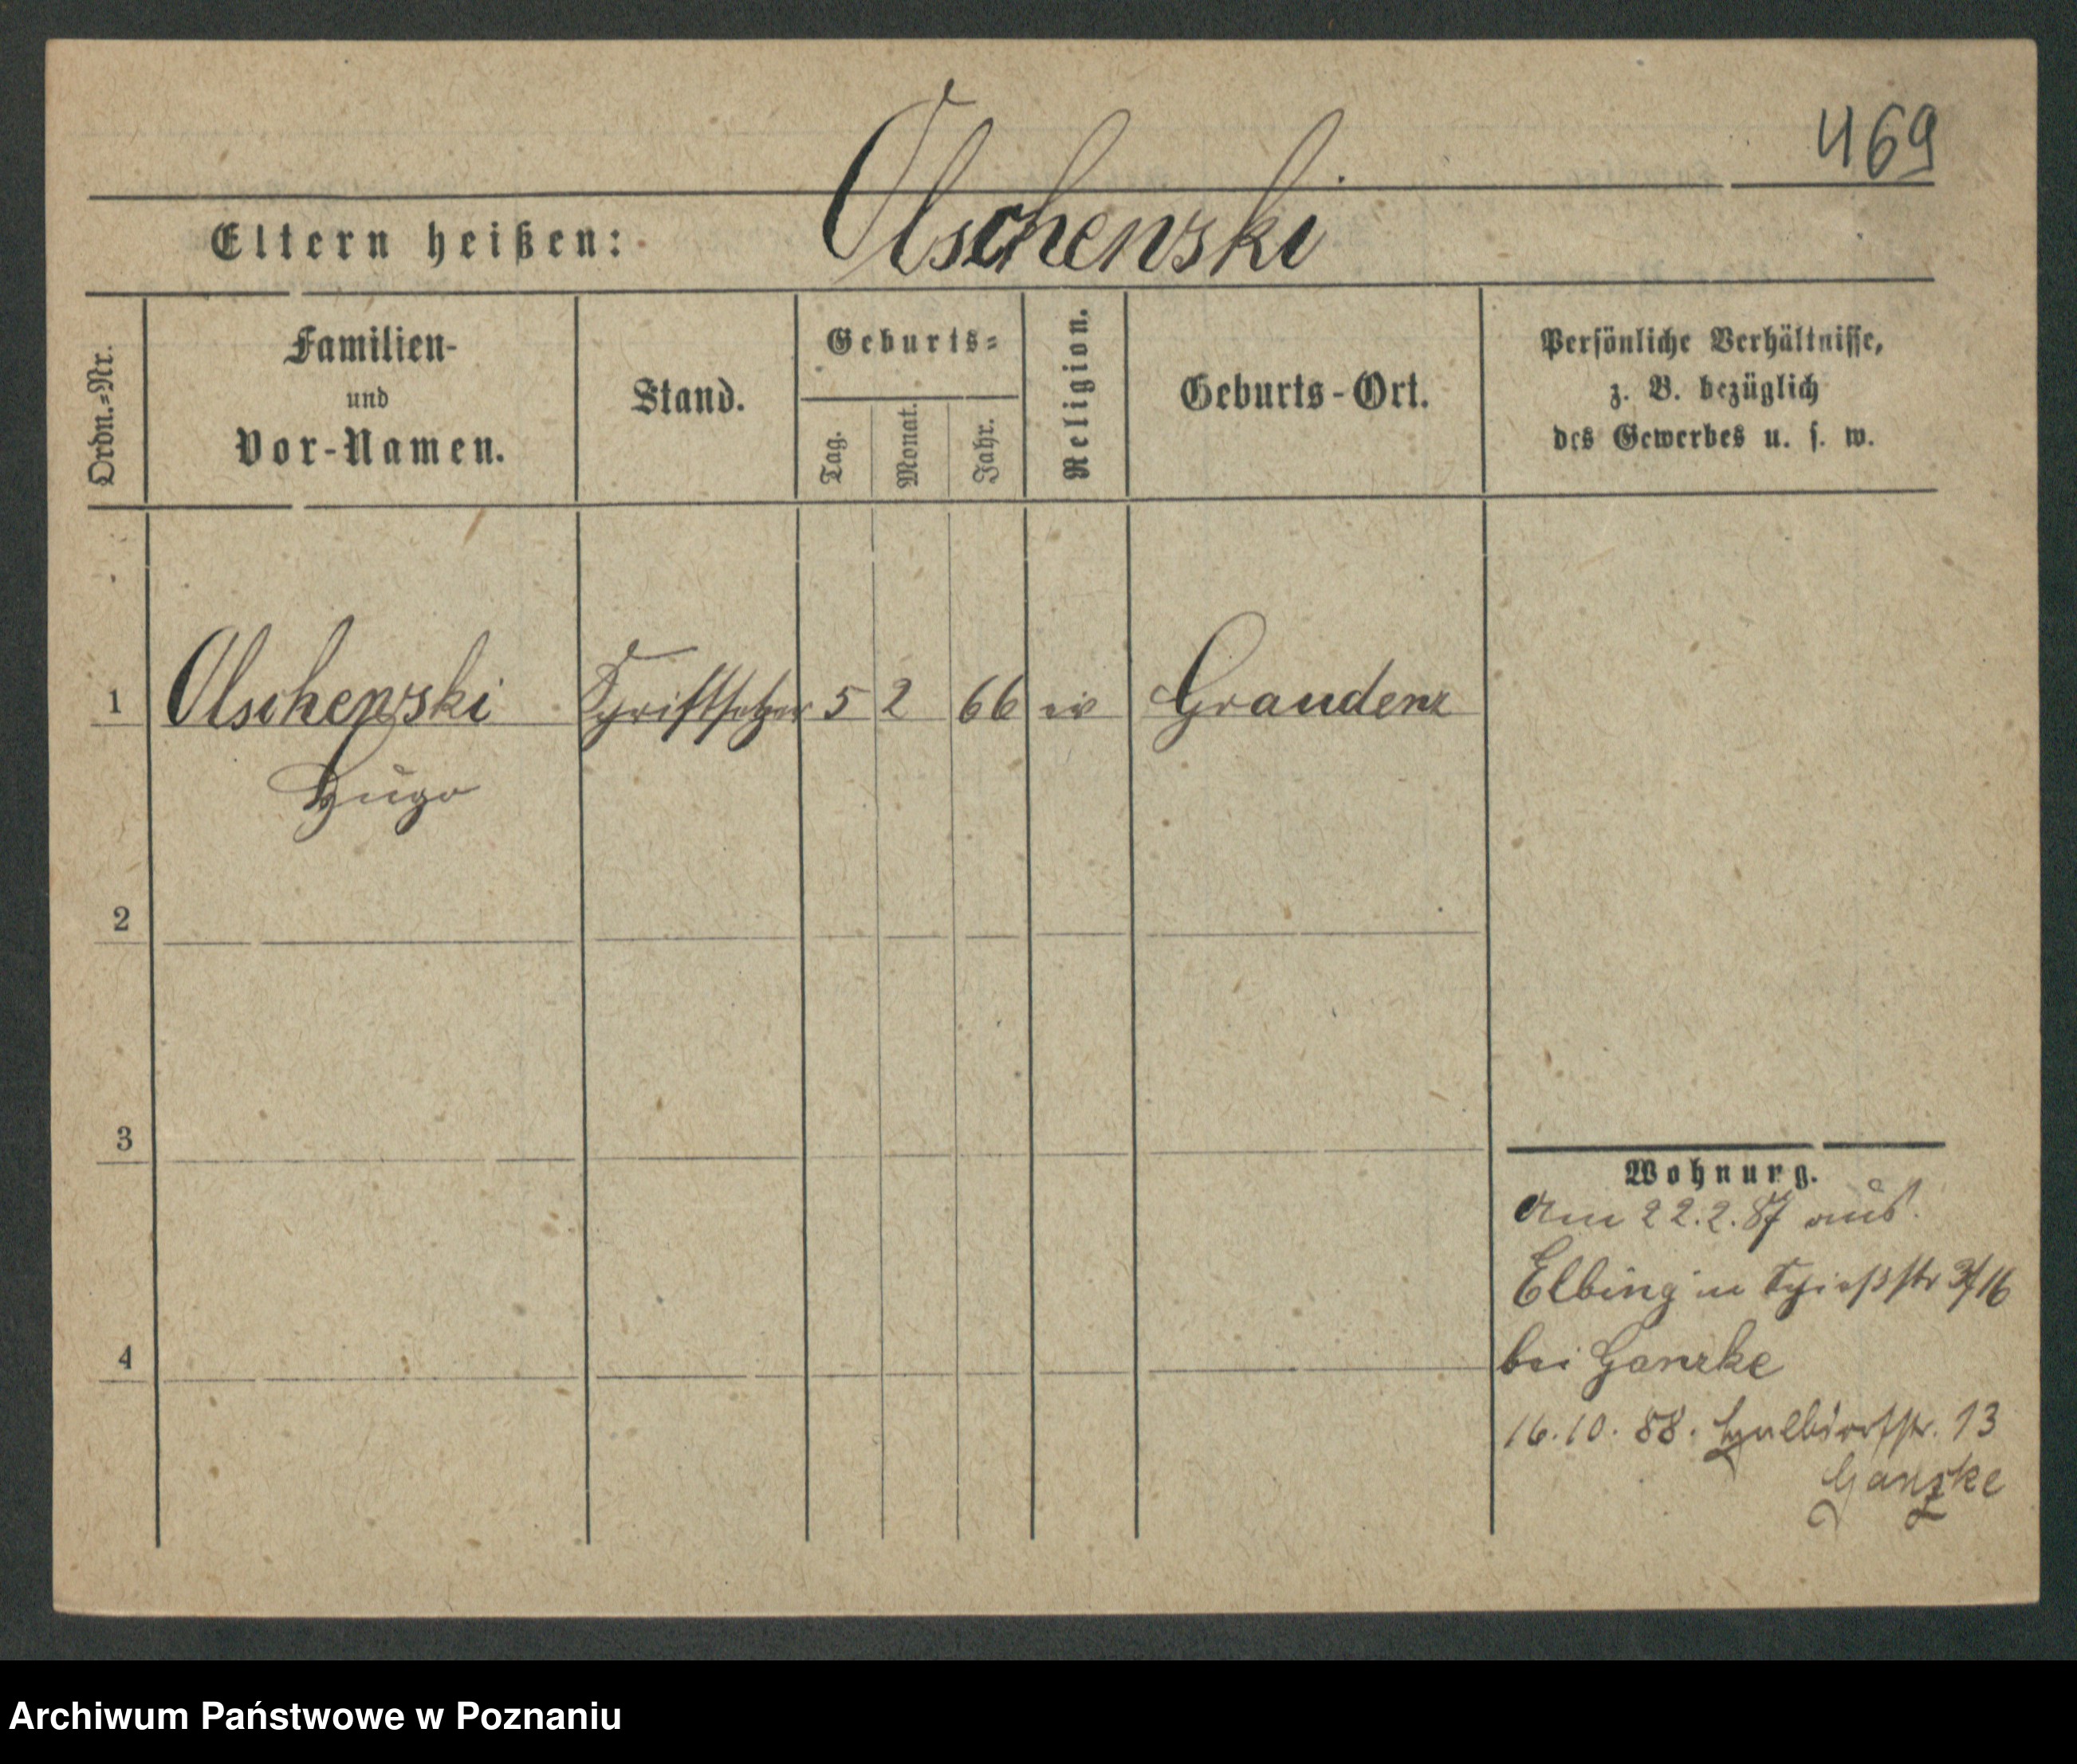 469
Olschenski
Eltern heißen:
Ordn.=Nr.
Familien-
und
Vor-Namen.
Stand.
Geburts=
Tag.
Monat.
Jahr.
Religion.
Geburts-Ort.
Persönliche Verhältnisse,
z. B. bezüglich
des Gewerbes u. s. w.
1 Olschenski Schriftsetzer 5 2 66 ev Graudenz
Hugo
2
3
4
Wohnung.
Am 22.2.87 aus
Elbing in Schießstr
bei Ganzke
16.10.88. Halbdorfstr. 13
Ganzke
Archiwum Państwowe w Poznaniu